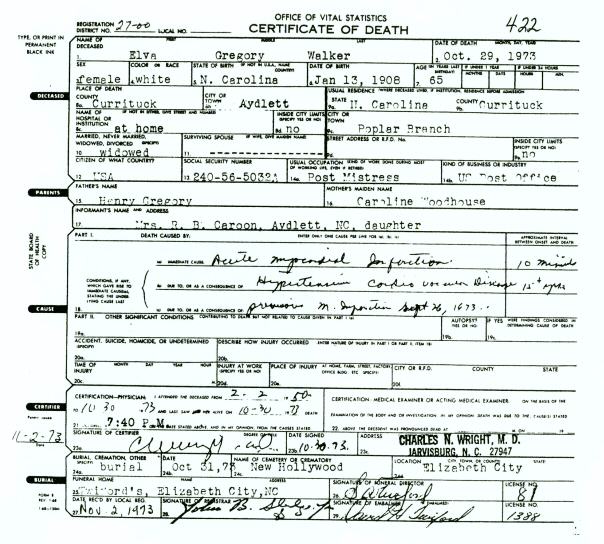 OFFICE OF VITAL STATISTICS
REGISTRATION DISTRICT NO. 27-00 LOCAL NO. CERTIFICATE OF DEATH 422
TYPE, OR PRINT IN PERMANENT BLACK INK
NAME OF DECEASED FIRST MIDDLE LAST DATE OF DEATH MONTH, DAY, YEAR
1. Elva Gregory Walker 2. Oct. 29, 1973
SEX COLOR OR RACE STATE OF BIRTH (IF NOT IN U.S.A., NAME COUNTRY) DATE OF BIRTH AGE (IN YEARS LAST BIRTHDAY) IF UNDER 1 YEAR MONTHS DAYS IF UNDER 24 HOURS HOURS MIN.
3. female 4. white 5. N. Carolina 6. Jan 13, 1908 7. 65
DECEASED
PLACE OF DEATH USUAL RESIDENCE (WHERE DECEASED LIVED, IF INSTITUTION, RESIDENCE BEFORE ADMISSION)
COUNTY CITY OR TOWN STATE COUNTY
8a. Currituck Aydlett 9a. N. Carolina 9b. Currituck
NAME OF HOSPITAL OR INSTITUTION (IF NOT IN EITHER, GIVE STREET AND NUMBER) INSIDE CITY LIMITS (SPECIFY YES OR NO) CITY OR TOWN
8c. at home 8d. no Poplar Branch
MARRIED, NEVER MARRIED, WIDOWED, DIVORCED (SPECIFY) SURVIVING SPOUSE (IF WIFE, GIVE MAIDEN NAME) STREET ADDRESS OR R.F.D. No. INSIDE CITY LIMITS (SPECIFY YES OR NO)
10. widowed 11. ---------- no
CITIZEN OF WHAT COUNTRY? SOCIAL SECURITY NUMBER USUAL OCCUPATION (KIND OF WORK DONE DURING MOST OF WORKING LIFE, EVEN IF RETIRED) KIND OF BUSINESS OR INDUSTRY
12. USA 13. 240-56-5032A 14a. Post Mistress 14b. US Post Office
PARENTS
FATHER'S NAME MOTHER'S MAIDEN NAME
15. Henry Gregory 16. Caroline Woodhouse
INFORMANT'S NAME AND ADDRESS
17. Mrs. R. B. Caroon, Aydlett, NC, daughter
STATE BOARD OF HEALTH COPY
PART I. DEATH CAUSED BY: ENTER ONLY ONE CAUSE PER LINE FOR (a), (b), (c) APPROXIMATE INTERVAL BETWEEN ONSET AND DEATH
(a) IMMEDIATE CAUSE Acute myocardial Infarction 10 minutes
CONDITIONS, IF ANY, WHICH GAVE RISE TO IMMEDIATE CAUSE (a), STATING THE UNDERLYING CAUSE LAST
(b) DUE TO, OR AS A CONSEQUENCE OF Hypertensive Cardio vascular Disease
CAUSE
18. (c) DUE TO, OR AS A CONSEQUENCE OF previous M. Infarction Sept 26, 1973
PART II. OTHER SIGNIFICANT CONDITIONS CONTRIBUTING TO DEATH BUT NOT RELATED TO CAUSE GIVEN IN PART I (a) AUTOPSY? YES OR NO IF YES WERE FINDINGS CONSIDERED IN DETERMINING CAUSE OF DEATH
18a. 19a. 19b.
ACCIDENT, SUICIDE, HOMICIDE, OR UNDETERMINED (SPECIFY) DESCRIBE HOW INJURY OCCURRED (ENTER NATURE OF INJURY IN PART I OR PART II, ITEM 18)
20a. 20b.
TIME OF INJURY MONTH DAY YEAR HOUR INJURY AT WORK (SPECIFY YES OR NO) PLACE OF INJURY AT HOME, FARM, STREET, FACTORY, OFFICE BLDG. ETC. (SPECIFY) CITY OR R.F.D. COUNTY STATE
20c. M. 20d. 20e. 20f.
CERTIFICATION—PHYSICIAN: I ATTENDED THE DECEASED FROM 2-2 1950 CERTIFICATION: MEDICAL EXAMINER OR ACTING MEDICAL EXAMINER. ON THE BASIS OF THE
CERTIFIER
TO 10 30 73 AND LAST SAW HER ALIVE ON 10-30 73 DEATH EXAMINATION OF THE BODY AND/OR INVESTIGATION, IN MY OPINION DEATH WAS DUE TO THE CAUSE(S) STATED
21. 7:40 P M DATE STATED ABOVE, AND IN MY OPINION, FROM THE CAUSES STATED 22. ABOVE. THE DECEDENT WAS PRONOUNCED DEAD AT M. ON 19
11-2-73
SIGNATURE OF CERTIFIER DEGREE OR TITLE DATE SIGNED ADDRESS CHARLES N. WRIGHT, M. D.
23a. 23b. 10-30-73. 23c. JARVISBURG, N. C. 27947
BURIAL, CREMATION, OTHER (SPECIFY) DATE NAME OF CEMETERY OR CREMATORY LOCATION CITY, TOWN, OR COUNTY STATE
24a. burial Oct 31, 73 New Hollywood Elizabeth City
BURIAL
FUNERAL HOME NAME ADDRESS SIGNATURE OF FUNERAL DIRECTOR LICENSE NO.
25. Twiford's, Elizabeth City, NC 26. 81
DATE REC'D BY LOCAL REG. SIGNATURE OF REGISTRAR SIGNATURE OF EMBALMER LICENSE NO.
27. Nov. 2, 1973 28. 29. 1388